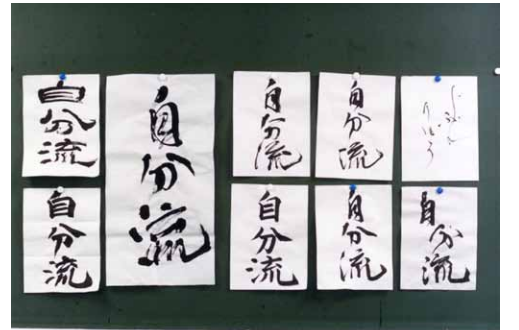 自分流
自分流
自分流
自分流
自分流
自分流
自分流
自分流